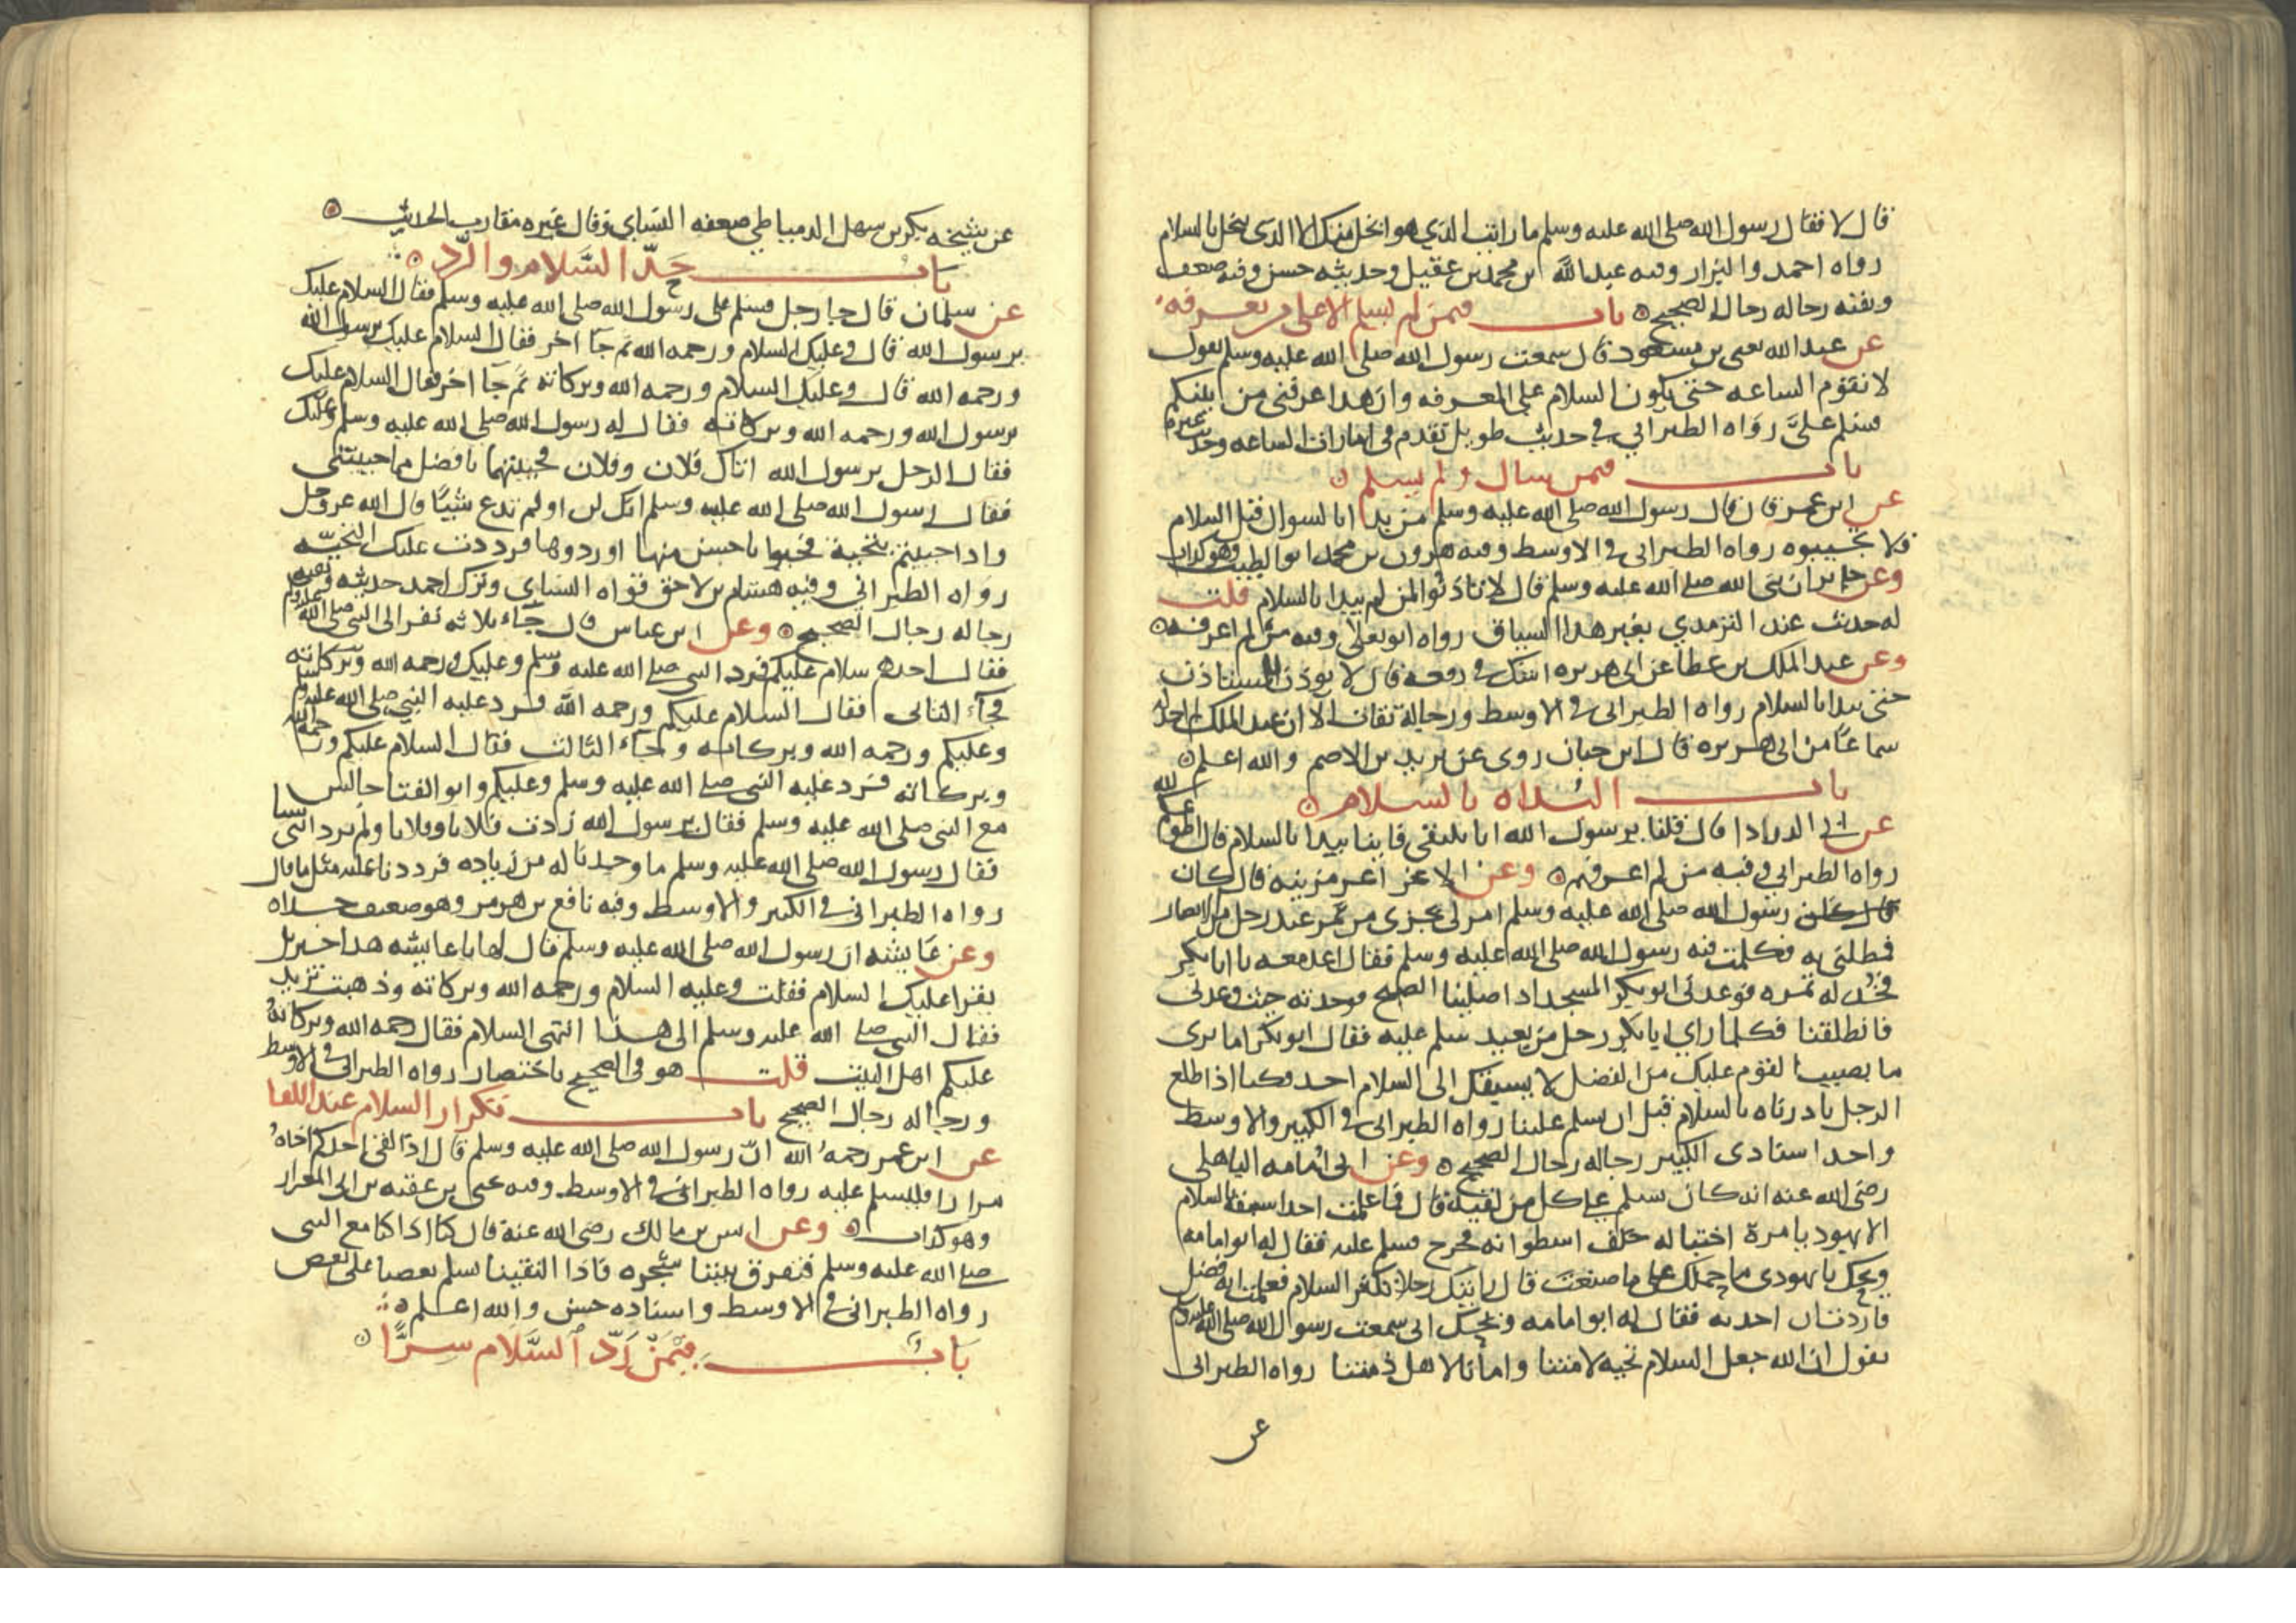 قال لا فقال رسول الله صلى الله عليه وسلم ما رايت الذي هو ابخل منك الا الذي يبخل بالسلام
رواه احمد والبزار وفيه عبد الله بن محمد بن عقيل وحديثه حسن وفيه ضعف
وبقية رجاله رجال الصحيح باب فيمن لم يسلم الا على من يعرفه
عن عبد الله يعني بن مسعود قال سمعت رسول الله صلى الله عليه وسلم يقول
لا تقوم الساعه حتى يكون السلام على المعرفه وان هذا عرفني من بينكم
فسلم علىَّ رواه الطبراني في حديث طويل تقدم في امارات الساعه
باب فيمن سال ولم يسلم
عن ابن عمر قال قال رسول الله صلى الله عليه وسلم من بدا بالسوال قبل السلام
فلا تجيبوه رواه الطبراني في الاوسط وفيه هرون بن محمد ابو الطيب وهو كذاب
وعن جابر ان نبي الله صلى الله عليه وسلم قال لا تاذنوا لمن لم يبدا بالسلام قلت
له حديث عند الترمذي بغير هذا السياق رواه ابو يعلى وفيه من لم اعرفه
وعن عبد الملك بن عطا عن ابي هريره قال لا يوذن للمستاذن
حتى يبدا بالسلام رواه الطبراني في الاوسط ورجاله ثقات الا ان عبد الملك لم اجد له
سماعًا من ابي هريره قال ابن حبان روى عن يزيد بن الاصم والله اعلم
باب البداه بالسلام
عن ابي الدرداء قال قلنا يرسول الله انا نلتقي فاينا يبدا بالسلام قال اطوعكم لله
رواه الطبراني وفيه من لم اعرفهم وعن الاغر اغر مزينه قال كان
رسول الله صلى الله عليه وسلم امر لي بجزء من تمر عند رجل من الانصار
فمطلني به فكلمت فيه رسول الله صلى الله عليه وسلم فقال اغد معه يا ابا بكر
فخذ له تمره فوعدني ابو بكر المسجد اذا صلينا الصبح فوجدته حيث وعدني
فانطلقنا فكلما راي ابا بكر رجل من بعيد سلم عليه فقال ابو بكر اما ترى
ما يصيب القوم عليك من الفضل لا يسبقك الى السلام احد فكنا اذا طلع
الرجل بادرناه بالسلام قبل ان يسلم علينا رواه الطبراني في الكبير والاوسط
واحد اسنادى الكبير رجاله رجال الصحيح وعن ابي امامه الباهلي
رضى الله عنه انه كان يسلم على كل من لقيه قال فما علمت احدا سبقه بالسلام
الا يهوديا مرة اختبا له خلف اسطوانه فخرج فسلم عليه فقال له ابو امامه
ويحك يا يهودي ما حملك على ما صنعت قال رايتك رجلا تكثر السلام فعلمت انه فضل
فاردت ان اخذ به فقال له ابو امامه ويحك اني سمعت رسول الله صلى الله عليه وسلم
يقول ان الله جعل السلام تحيه لامتنا وامانا لاهل ذمتنا رواه الطبراني
عن
عن شيخه بكر بن سهل الدمياطي ضعفه النساي وقال غيره مقارب الحديث
باب حدّ السّلام والرّد
عن سلمان قال جا رجل فسلم على رسول الله صلى الله عليه وسلم فقال السلام عليك
يرسول الله قال وعليك السلام ورحمه الله ثم جآ اخر فقال السلام عليك يرسول الله
ورحمه الله قال وعليك السلام ورحمه الله وبركاته ثم جآ اخر فقال السلام عليك
يرسول الله ورحمه الله وبركاته فقال له رسول الله صلى الله عليه وسلم وعليك
فقال الرجل يرسول الله اتاك فلان وفلان فحييتهما بافضل مما حييتني
فقال رسول الله صلى الله عليه وسلم انك لن او لم تدع شيًا قال الله عز وجل
واذا حييتم بتحية فحيوا باحسن منها او ردوها فرددت عليك التحيّه
رواه الطبراني وفيه هشام بن لاحق قواه النساي وترك احمد حديثه وبقيه
رجاله رجال الصحيح وعن ابن عباس قال جآء ثلاثه نفر الى النبي صلى الله عليه وسلم
فقال احدهم سلام عليكم فرد النبي صلى الله عليه وسلم وعليك ورحمه الله وبركاته
فجآء الثاني فقال السلام عليكم ورحمه الله فرد عليه النبي صلى الله عليه وسلم
وعليكم ورحمه الله وبركاته وجآء الثالث فقال السلام عليكم ورحمة الله
وبركاته فرد عليه النبي صلى الله عليه وسلم وعليكم وابو الفتا جالس
مع النبي صلى الله عليه وسلم فقال يرسول الله زدت فلانا وفلانا ولم تزد ابني شيا
فقال رسول الله صلى الله عليه وسلم ما وجدنا له من زياده فرددنا عليه مثل ما قال
رواه الطبراني في الكبير والاوسط وفيه نافع بن هرمز وهو ضعيف جداه
وعن عايشه ان رسول الله صلى الله عليه وسلم قال لها يا عايشه هذا جبريل
يقرا عليك السلام فقلت وعليه السلام ورحمه الله وبركاته وذهبت تزيد
فقال النبي صلى الله عليه وسلم الى هذا انتهى السلام فقال رحمه الله وبركاته
عليكم اهل البيت قلت هو في الصحيح باختصار رواه الطبراني في الاوسط
ورجاله رجال الصحيح باب تكرار السلام عند اللقا
عن ابن عمر رحمه الله انّ رسول الله صلى الله عليه وسلم قال اذا لقي احدكم اخاه
مرارا فليسلم عليه رواه الطبراني في الاوسط وفيه يحيى بن عقبه بن ابي العيزار
وهو كذاب وعن انس بن مالك رضى الله عنه قال كنا اذا كنا مع النبي
صلى الله عليه وسلم فتفرق بيننا شجره فاذا التقينا يسلم بعضنا على بعض
رواه الطبراني في الاوسط واسناده حسن والله اعلم
باب فيمن رَدّ السَّلام سِرًّا